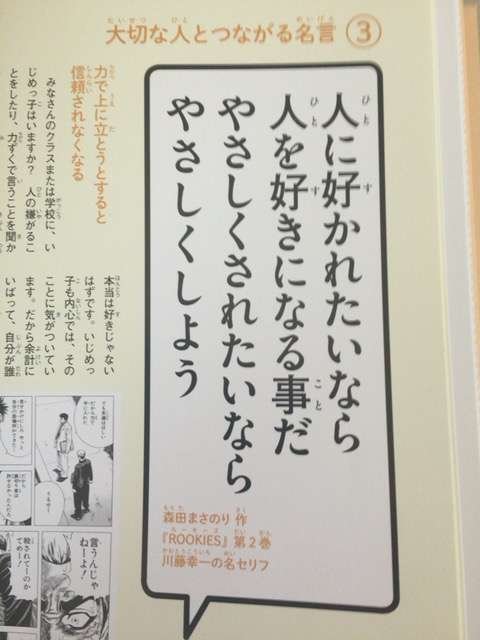 大切な人とつながる名言③
人に好かれたいなら
人を好きになる事だ
やさしくされたいなら
やさしくしよう
森田まさのり 作
『ROOKIES』第2巻
川藤幸一の名セリフ
力で上に立とうとすると
信頼されなくなる
みなさんのクラスまたは学校に、い
じめっ子はいますか? 人の嫌がるこ
とをしたり、力ずくで言うことを聞か
本当は好きじゃない
はずです。いじめっ
子も内心では、その
ことに気がついてい
ます。だから余計に
いばって、自分が誰
言うんじゃ
ねーよ!